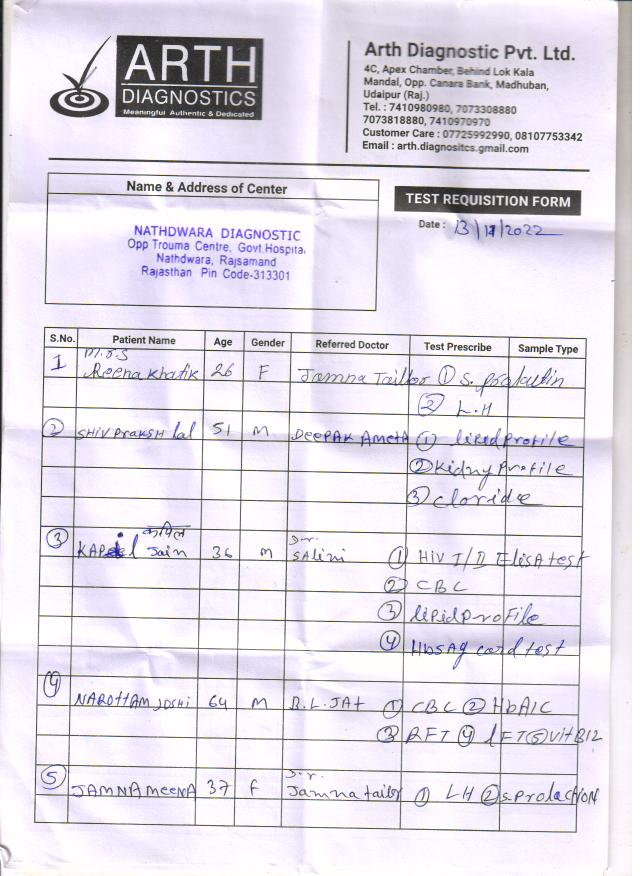 ARTH
DIAGNOSTICS
Meaningful Authentic & Dedicated
Arth Diagnostic Pvt. Ltd.
4C, Apex Chamber, Behind Lok Kala
Mandal, Opp. Canara Bank, Madhuban,
Udaipur (Raj.)
Tel. : 7410980980, 7073308880
7073818880, 7410970970
Customer Care : 07725992990, 08107753342
Email : arth.diagnositcs.gmail.com
Name & Address of Center
NATHDWARA DIAGNOSTIC
Opp Trouma Centre, Govt.Hospital,
Nathdwara, Rajsamand
Rajasthan Pin Code-313301
TEST REQUISITION FORM
Date : 13/ /2022
S.No. Patient Name Age Gender Referred Doctor Test Prescribe Sample Type
1 Mrs Reena Khatik 26 F Jamna Tailor ① S. prolactin
② L.H
② SHiv Praksh lal 51 M DeePAK AmetA ① lipid profile
② Kidny Profile
③ cloride
कपिल Dr.
③ KAPil Jain 36 m SAlini ① HiV I/II ElisA test
② CBC
③ lipid profile
④ HbsAg card test
④ NAROTTAM JOSHI 64 M B.L.JAt ① CBC ② HbA1C
③ RFT ④ lFT ⑤ Vit B12
Dr.
⑤ JAMNA meenA 37 f Jamna tailor ① LH ② s.ProlactioN